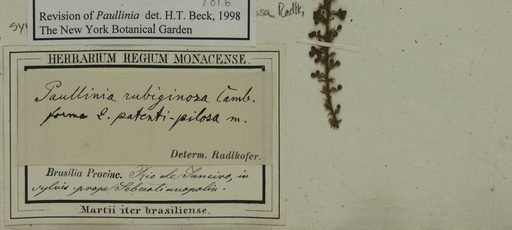 Revision of Paullinia det. H.T. Beck, 1998
The New York Botanical Garden
Radlk.
HERBARIUM REGIUM MONACENSE.
Paullinia rubiginosa Camb.
forma 2. patenti-pilosa m.
Determ. Radlkofer.
Brasilia Provinc. Rio de Janeiro, in
sylvis prope Sebastianopolin.
Martii iter brasiliense.